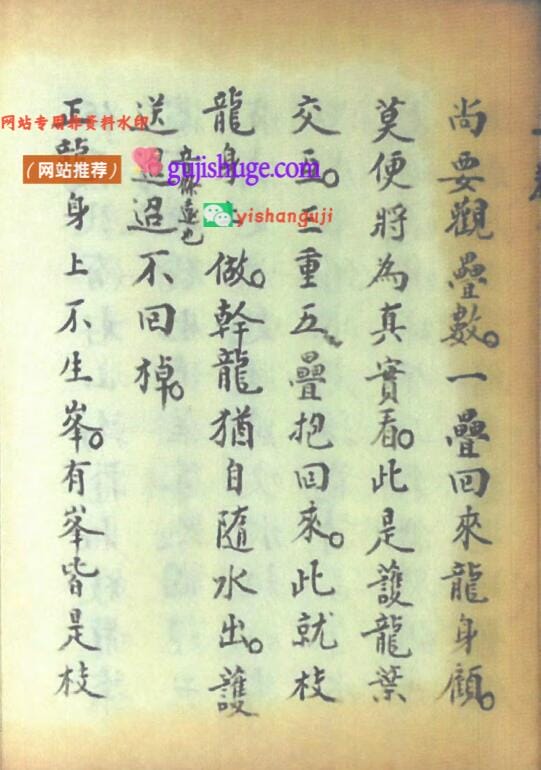 尚要觀疊數。一疊回來龍身顧。
莫便將為真實看。此是護龍葉
交互。三重五疊抱回來。此就枝
龍身上做。幹龍猶自隨水出。護
送迢迢不回掉。
正龍身上不生峯。有峯皆是枝
网站专用养资料水印
(网站推荐)
gujishuge.com
yishanguji